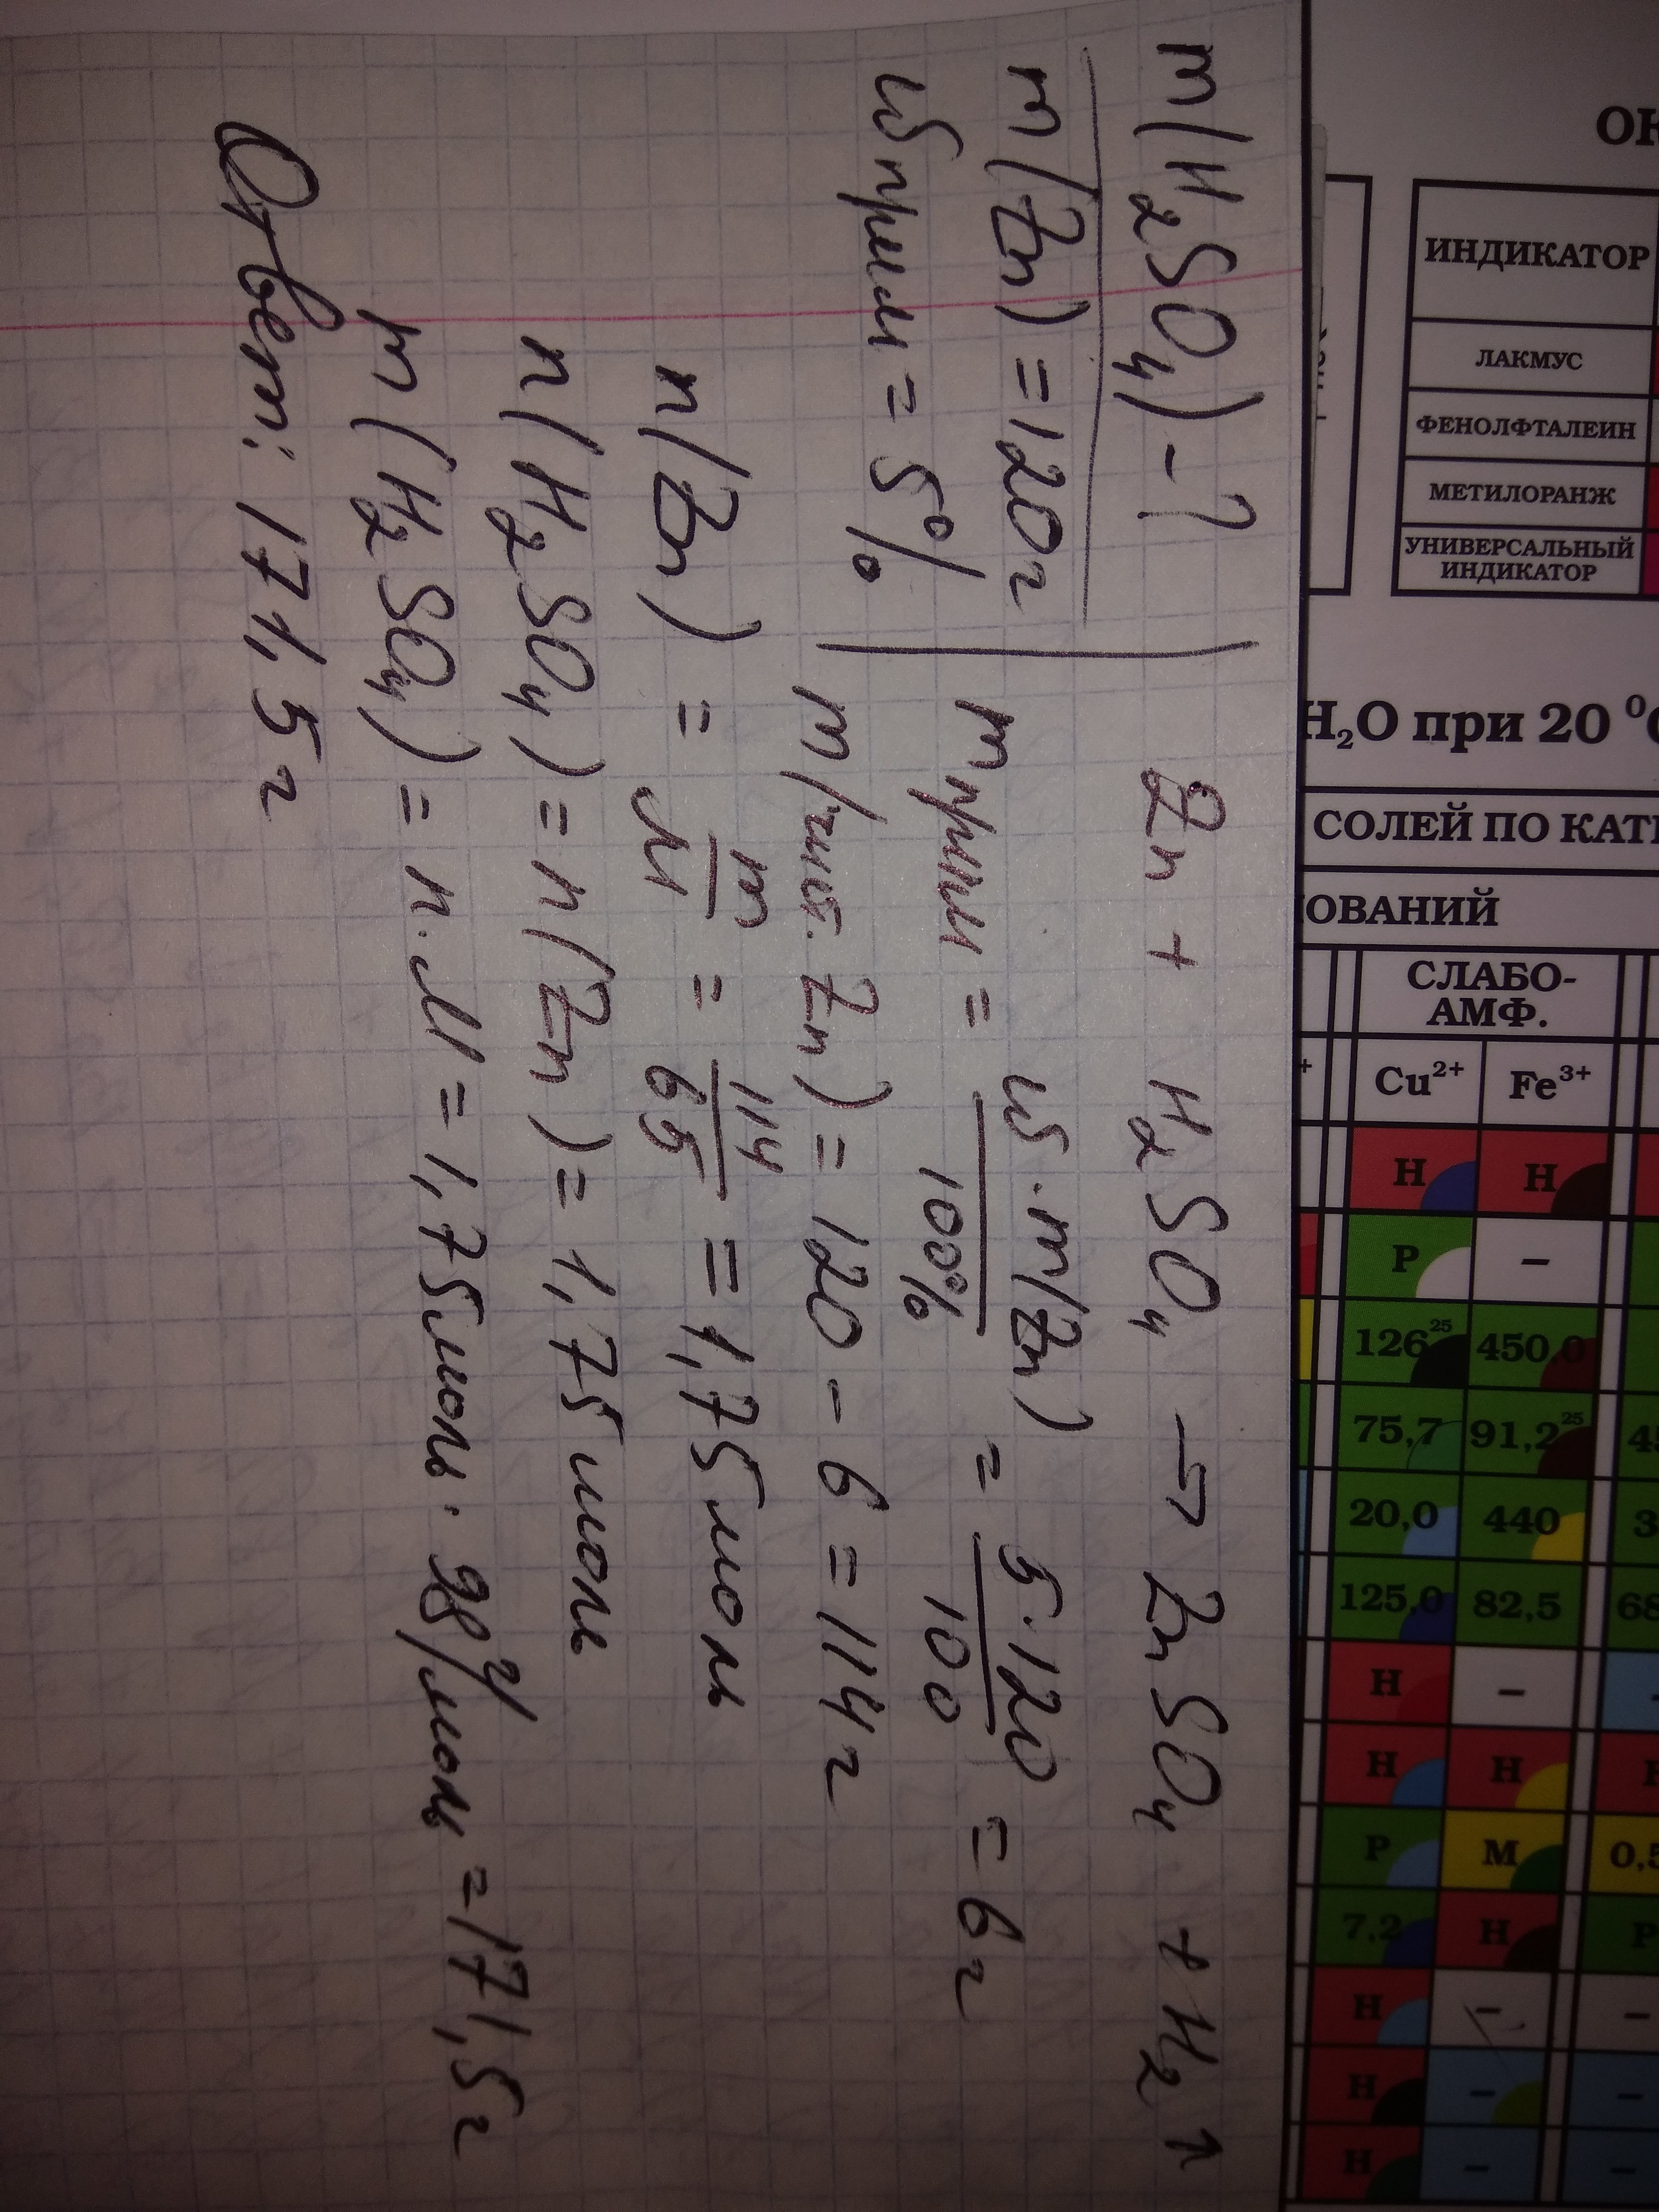 m(H₂SO₄) - ?
m(Zn) = 120г
ω прим = 5%
Zn + H₂SO₄ → ZnSO₄ + H₂↑
m прим = ω·m(Zn) / 100% = 5·120 / 100 = 6г
m(чист. Zn) = 120 - 6 = 114г
n(Zn) = m / M = 114 / 65 = 1,75моль
n(H₂SO₄) = n(Zn) = 1,75моль
m(H₂SO₄) = n·M = 1,75моль·98г/моль = 171,5г
Ответ: 171,5г
ИНДИКАТОР
ЛАКМУС
ФЕНОЛФТАЛЕИН
МЕТИЛОРАНЖ
УНИВЕРСАЛЬНЫЙ
ИНДИКАТОР
H₂O при 20 ⁰
СОЛЕЙ ПО КАТ
ОВАНИЙ
СЛАБО-
АМФ.
Cu²⁺ Fe³⁺
Н Н
Р –
126²⁵ 450,0
75,7 91,2²⁵
20,0 440
125,0 82,5 68
Н –
Н Н
Р М 0,5
7,2 Н Р
Н – –
Н – –
Н – –